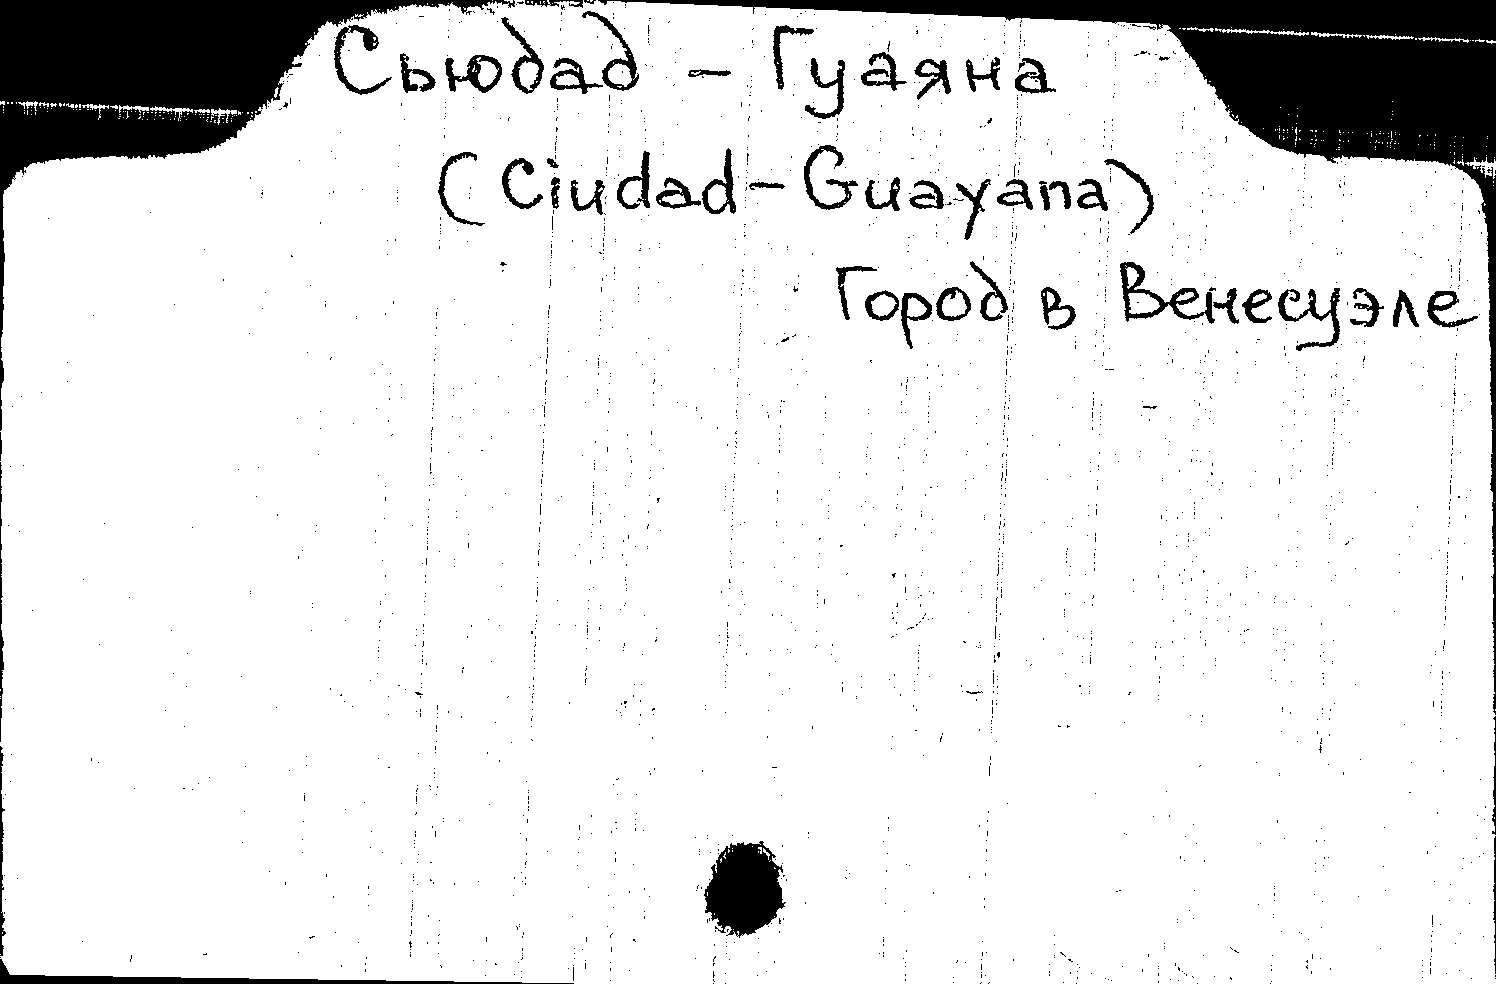 Сьюдад - Гуаяна
(Ciudad-Guayana)
Город в Венесуэле